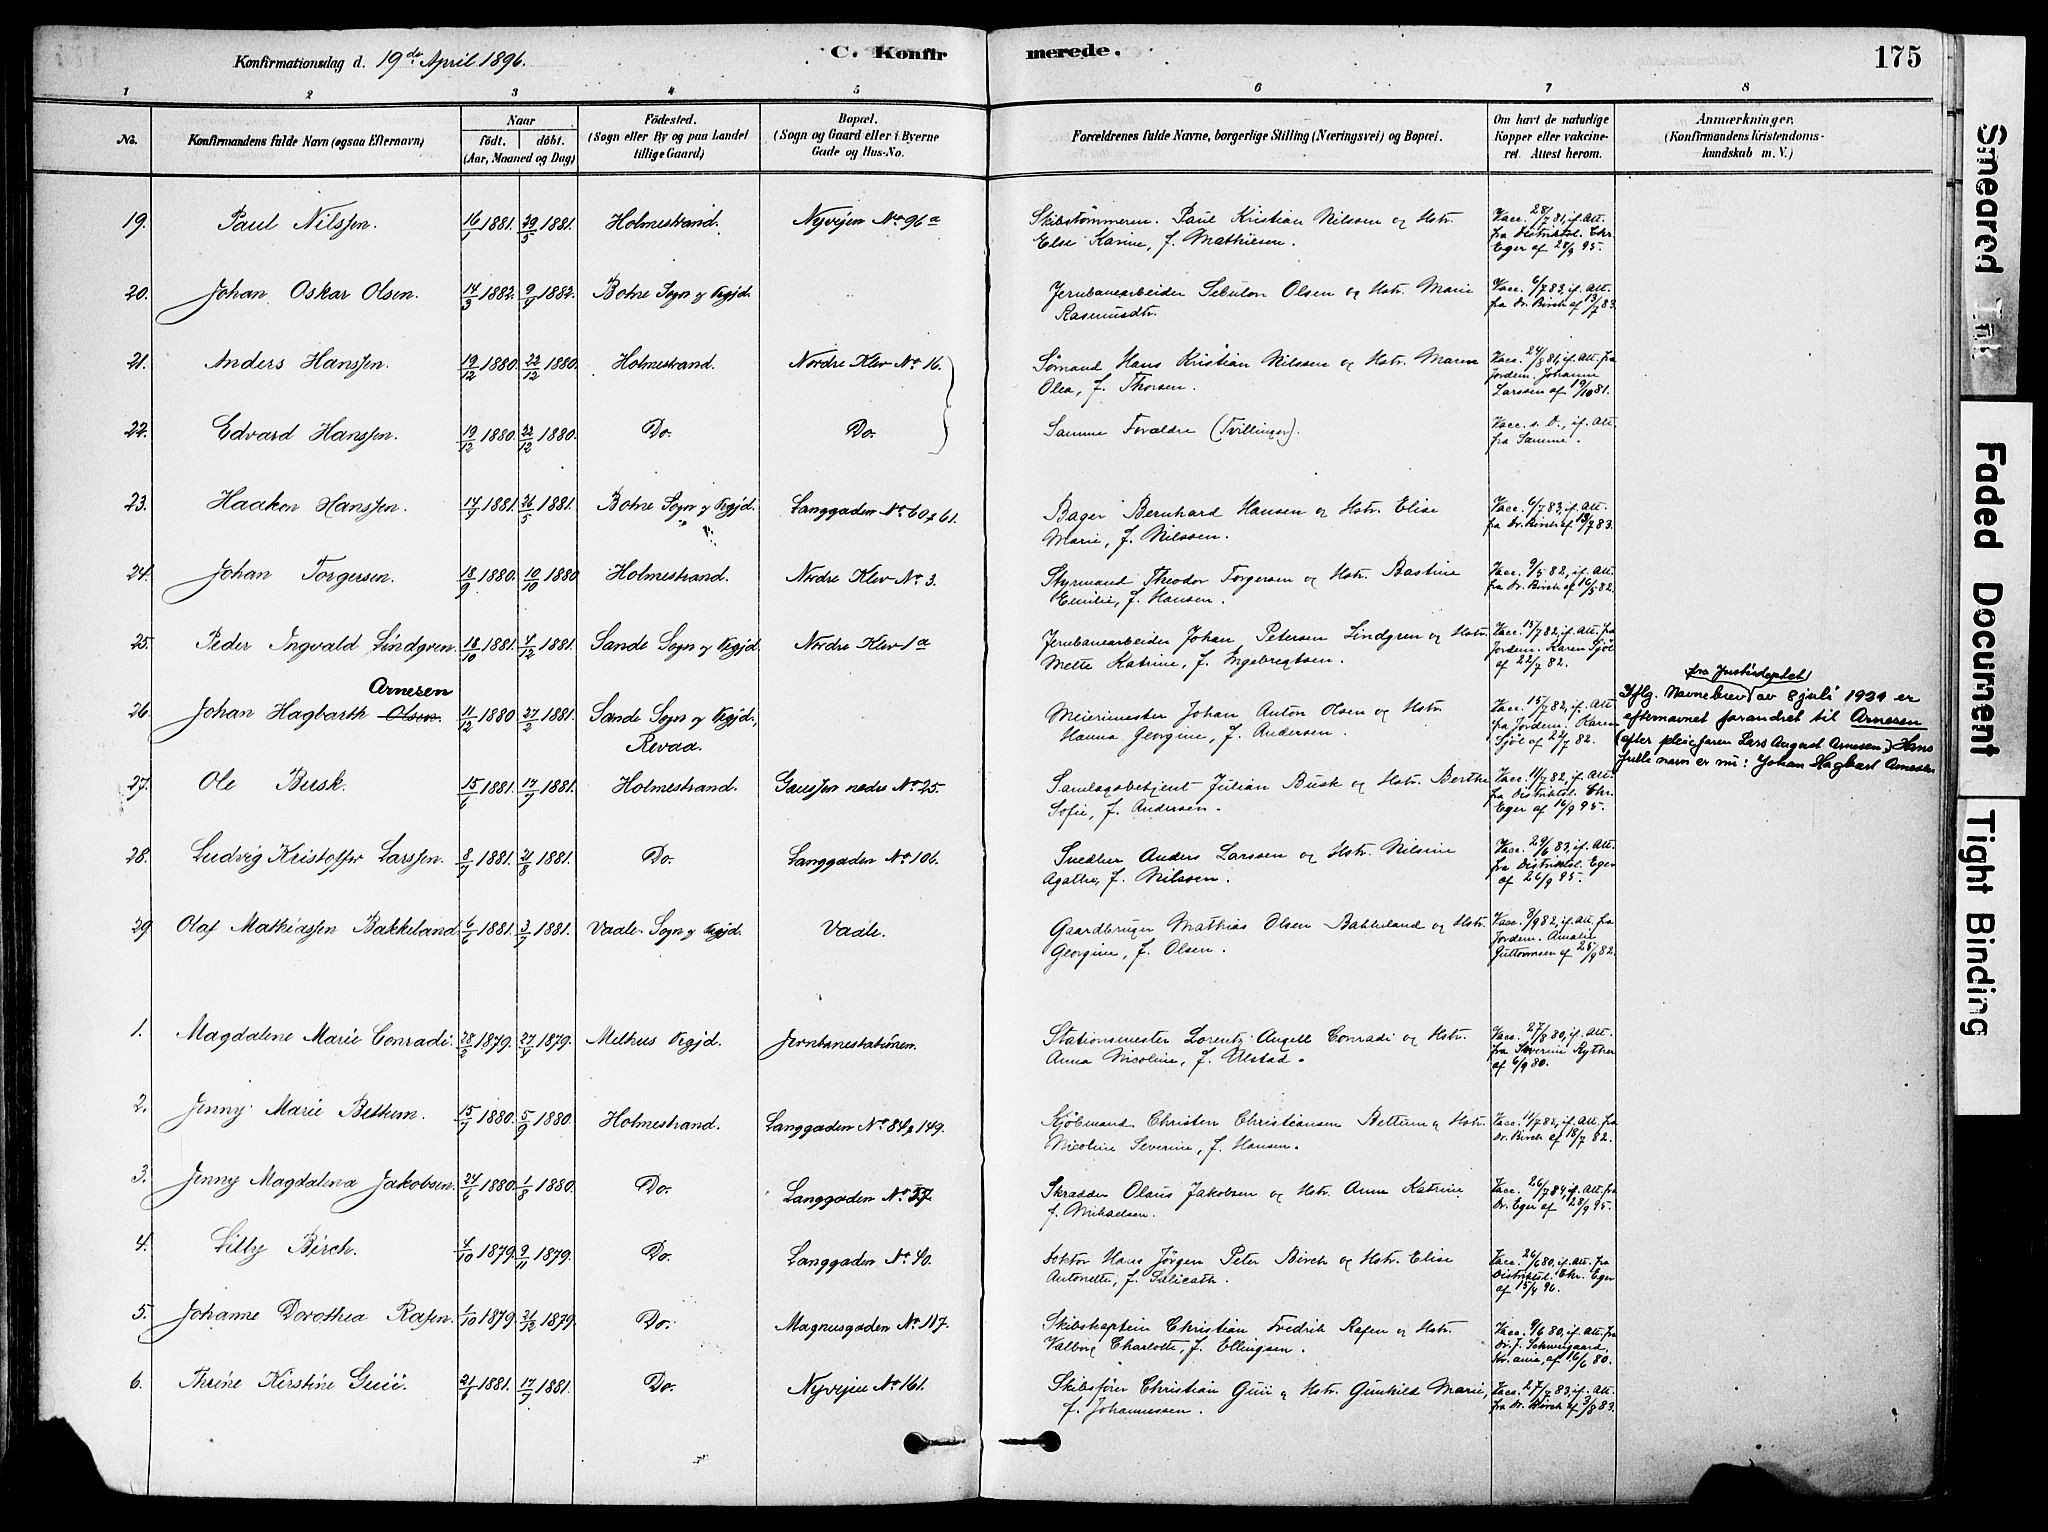 Konfirmationsdag d. 19de April 1896.
C. Konfirmerede.
175
1 2 3 4 5 6 7 8
No.
Konfirmandens fulde Navn (ogsaa Efternavn)
Naar
födt. döbt.
(Aar, Maaned og Dag)
Födested.
(Sogn eller By og paa Landet
tillige Gaard)
Bopæl.
(Sogn og Gaard eller i Byerne
Gade og Hus-No.
Forældrenes fulde Navne, borgerlige Stilling (Næringsvei) og Bopæl.
Om havt de naturlige
Kopper eller vakcine-
ret. Attest herom.
Anmærkninger.
(Konfirmandens Kristendoms-
kundskab m. V.)
19. Paul Nilssen. 16/1 1881. 29/5 1881. Holmestrand. Nyvejen No 96a
Skibstømmerm. Paul Kristian Nilssen og Hstr.
Else Karine, f. Mathiesen.
Vacc. 28/7 81, if. Att.
fra Distriktsl. Chr.
Eger af 28/9 95.
20. Johan Oskar Olsen. 14/3 1882. 9/4 1882. Botne Sogn og Prgjd.
Jernbanearbeider Sebulon Olsen og Hstr. Marie
Rasmusdtr.
Vacc. 6/7 83, if. Att.
fra Dr. Birch af 13/7 83.
21. Anders Hanssen. 19/12 1880. 22/12 1880. Holmestrand. Nordre Klev No 16.
Sømand Hans Kristian Nilssen og Hstr. Maren
Olea, f. Thorsen.
Vacc. 24/8 81, if. Att. fra
Jordem. Johanne
Larssen af 19/10 81.
22. Edvard Hanssen. 19/12 1880. 22/12 1880. Do. Do.
Samme Forældre (Tvillinger).
Vacc. s. D., if. Att.
fra Samme.
23. Haakon Hanssen. 14/4 1881. 26/5 1881. Botne Sogn og Prgjd. Langgaden No 60 & 61.
Bager Bernhard Hansen og Hstr. Elise
Marie, f. Nilssen.
Vacc. 6/7 83, if. Att.
fra Dr. Birch af 13/7 83.
24. Johan Torgersen. 18/9 1880. 10/10 1880 Holmestrand. Nordre Klev No 3.
Styrmand Theodor Torgersen og Hstr. Bastine
Emilie, f. Hansen.
Vacc. 9/5 82, if. Att.
fra Dr. Birch af 16/5 82.
25. Peder Ingvald Lindgren. 18/10 1881. 4/12 1881. Sande Sogn og Prgjd. Nordre Klev 1a
Jernbanearbeider Johan Petersen Lindgren og Hstr.
Mette Katrine, f. Engebregtsen.
Vacc. 15/7 82, if. Att. fra
Jordem. Karen Sjøl
af 22/7 82.
Arnesen
26. Johan Hagbarth Olsen. 11/12 1880 27/2 1881. Sande Sogn og Prgjd.,
Revaa.
Meierimester Johan Anton Olsen og Hstr.
Hanna Georgine, f. Andersen.
Vacc. 15/7 82, if. Att.
fra Jordem. Karen
Sjøl af 22/7 82.
fra Justisdeptet
Iflg. Navnebrev av 8 juli 1939 er
efternavnet forandret til Arnesen
(efter pleiefaren Lars August Arnesen) Hans
fulle navn er nu: Johan Hagbart Arnesen
27. Ole Busk. 15/6 1881. 17/7 1881. Holmestrand. Gausen nedre No 25.
Samlagsbetjent Julian Busk og Hstr. Berthe
Sofie, f. Andersen.
Vacc. 11/7 82, if. Att.
fra Distriktsl. Chr.
Eger af 16/9 95.
28. Ludvig Kristoffer Larssen. 8/7 1881. 21/8 1881. Do. Langgaden No 106.
Snedker Anders Larssen og Hstr. Nilsine
Agathe, f. Nilssen.
Vacc. 29/6 83, if. Att.
fra Distriktsl. Eger
af 26/9 95.
29 Olaf Mathiassen Bakkeland 6/6 1881. 3/7 1881. Vaale Sogn og Prgjd. Vaale.
Gaardbruger Mathias Olsen Bakkeland og Hstr.
Georgine, f. Olsen.
Vacc. 8/9 82, if. Att. fra
Jordem. Amalie
Guttormsen af 25/9 82.
1. Magdalene Marie Conradi. 28/2 1879. 27/4 1879. Melhus Prgjd. Jernbanestationen.
Stationsmester Lorentz Angell Conradi og Hstr.
Anna Nicoline, f. Ulstad.
Vacc. 27/8 80, if. Att.
fra Severine Ryther
af 6/9 80.
2. Jenny Marie Bettum. 15/7 1880. 5/9 1880. Holmestrand. Langgaden No 84 & 149.
Kjøbmand Christen Christiansen Bettum og Hstr.
Nicoline Severine, f. Hansen.
Vacc. 11/7 82, if. Att. fra
Dr. Birch af 18/7 82.
3. Jenny Magdalena Jakobsen. 24/6 1880. 1/8 1880. Do. Langgaden No 27.
Skrædder Olaus Jakobsen og Hstr. Anne Katrine
f. Mikaelsen.
Vacc. 26/7 84, if. Att. fra
Dr. Eger af 28/9 95.
4. Lilly Birch. 4/10 1879. 9/11 1879. Do. Langgaden No 40.
Doktor Hans Jörgen Peter Birch og Hstr. Elise
Antonette, f. Salicath.
Vacc. 26/6 80, if. Att. fra
Distriktsl. Chr. Eger
af 15/4 96.
5. Johanne Dorothea Rafen. 1/10 1879. 21/12 1879. Do. Magnusgaden No 117.
Skibskaptein Christian Fredrik Rafen og Hstr.
Valborg Charlotte, f. Ellingsen.
Vacc. 9/6 80, if. Att. fra
Dr. J. Schweigaard,
Kr.ania, af 16/6 80.
6. Thrine Kirstine Guii. 21/1 1881. 17/7 1881. Do. Nyvejen No 161.
Skibsfører Christian Guii og Hstr. Gunhild Marie,
f. Johannessen.
Vacc. 27/7 83, if. Att.
fra Dr. Birch af 3/8 83.
Smeared Ink
Faded Document
Tight Binding